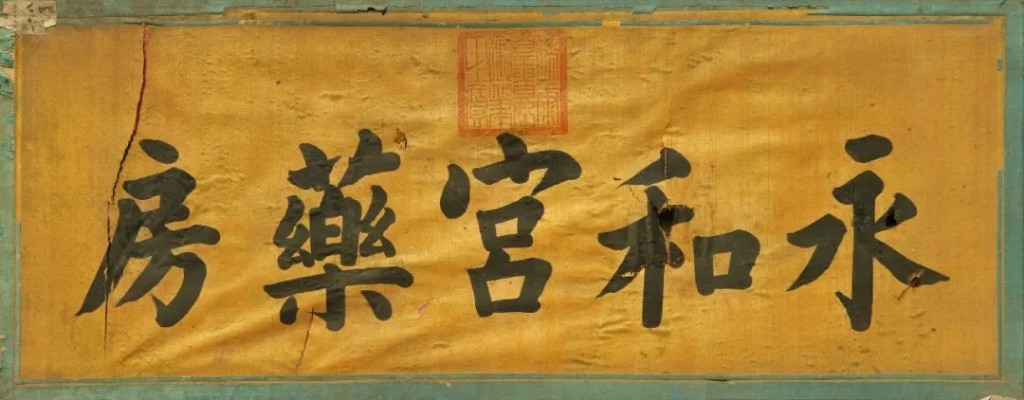 永和宮藥房